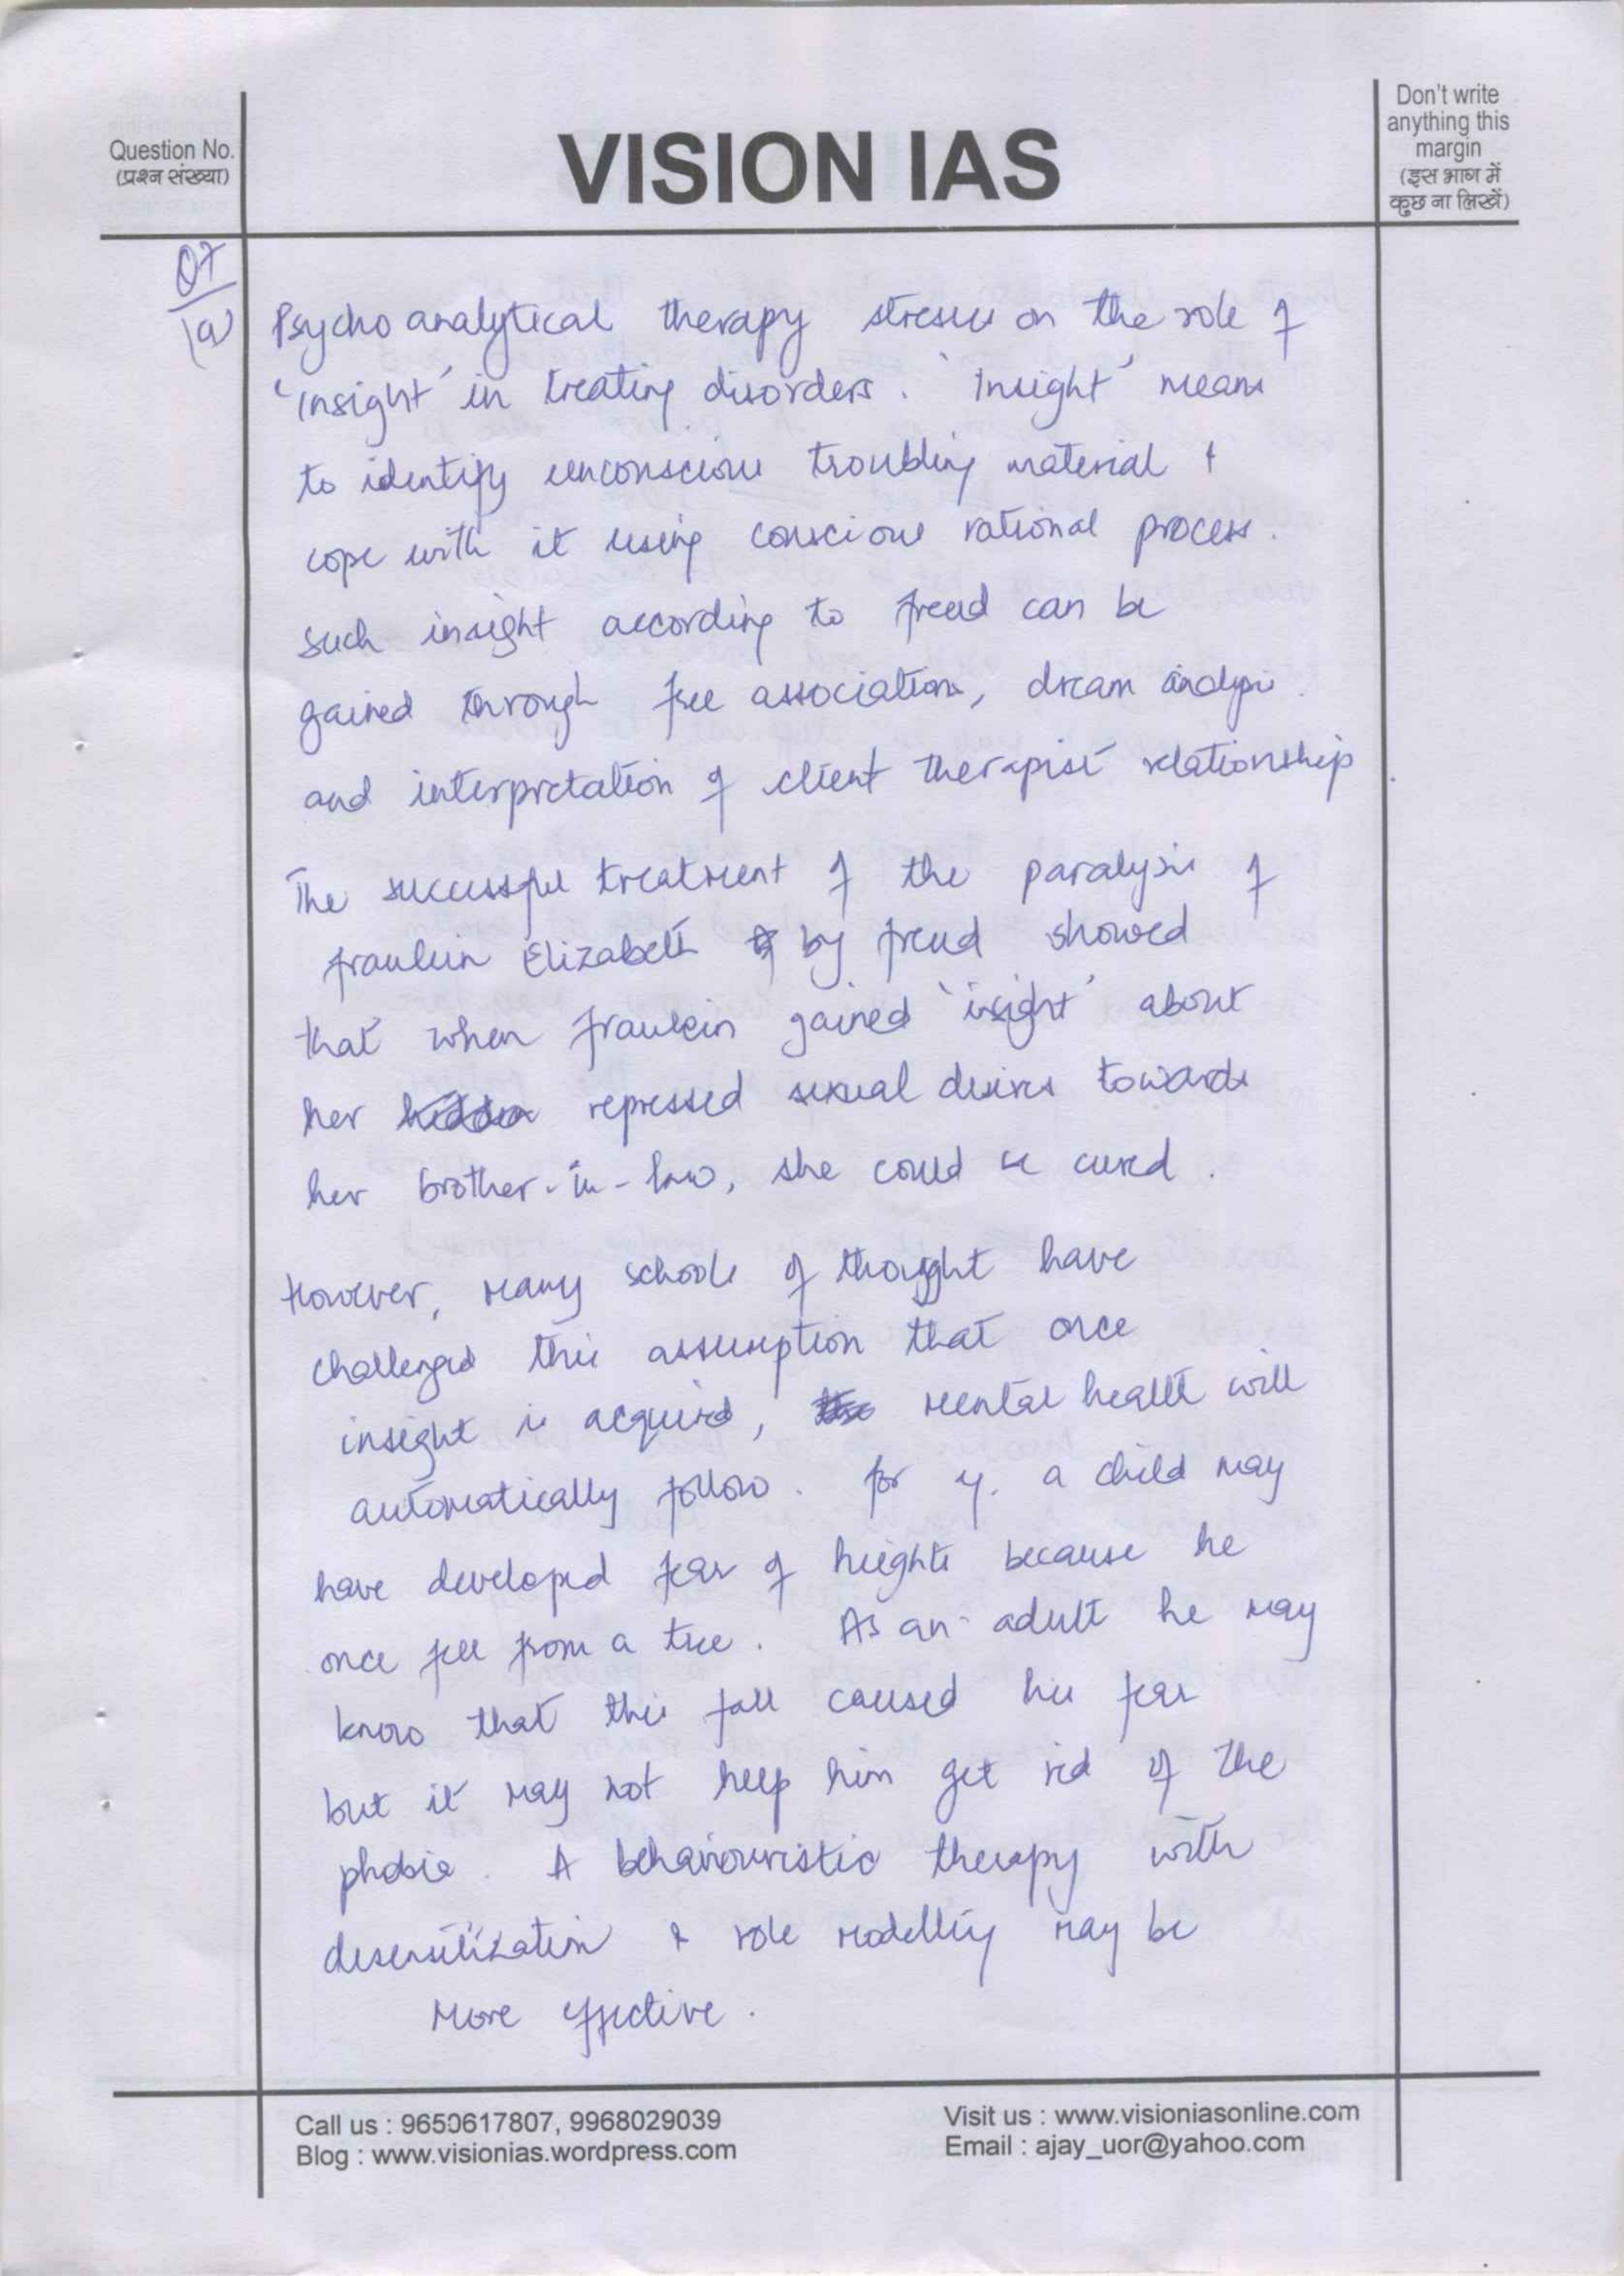 Question No.
(प्रश्न संख्या)
VISION IAS
Don't write
anything this
margin
(इस भाग में
कुछ ना लिखें)
Q7
(a)
Psychoanalytical therapy stresses on the role of
'insight' in treating disorders. 'Insight' means
to identify unconscious troubling material +
cope with it using conscious rational process.
such insight according to freud can be
gained through free associations, dream analysis
and interpretation of client therapist relationship
The successful treatment of the paralysis of
fraulein Elizabeth by freud showed
that when fraulein gained 'insight' about
her repressed sexual desires towards
her brother-in-law, she could be cured.
However, many schools of thought have
challenged this assumption that once
insight is acquired, mental health will
automatically follow. for eg. a child may
have developed fear of heights because he
once fell from a tree. As an adult he may
know that this fall caused his fear
but it may not help him get rid of the
phobia. A behaviouristic therapy with
desensitization & role modelling may be
more effective.
Call us : 9650617807, 9968029039
Blog : www.visionias.wordpress.com
Visit us : www.visioniasonline.com
Email : ajay_uor@yahoo.com